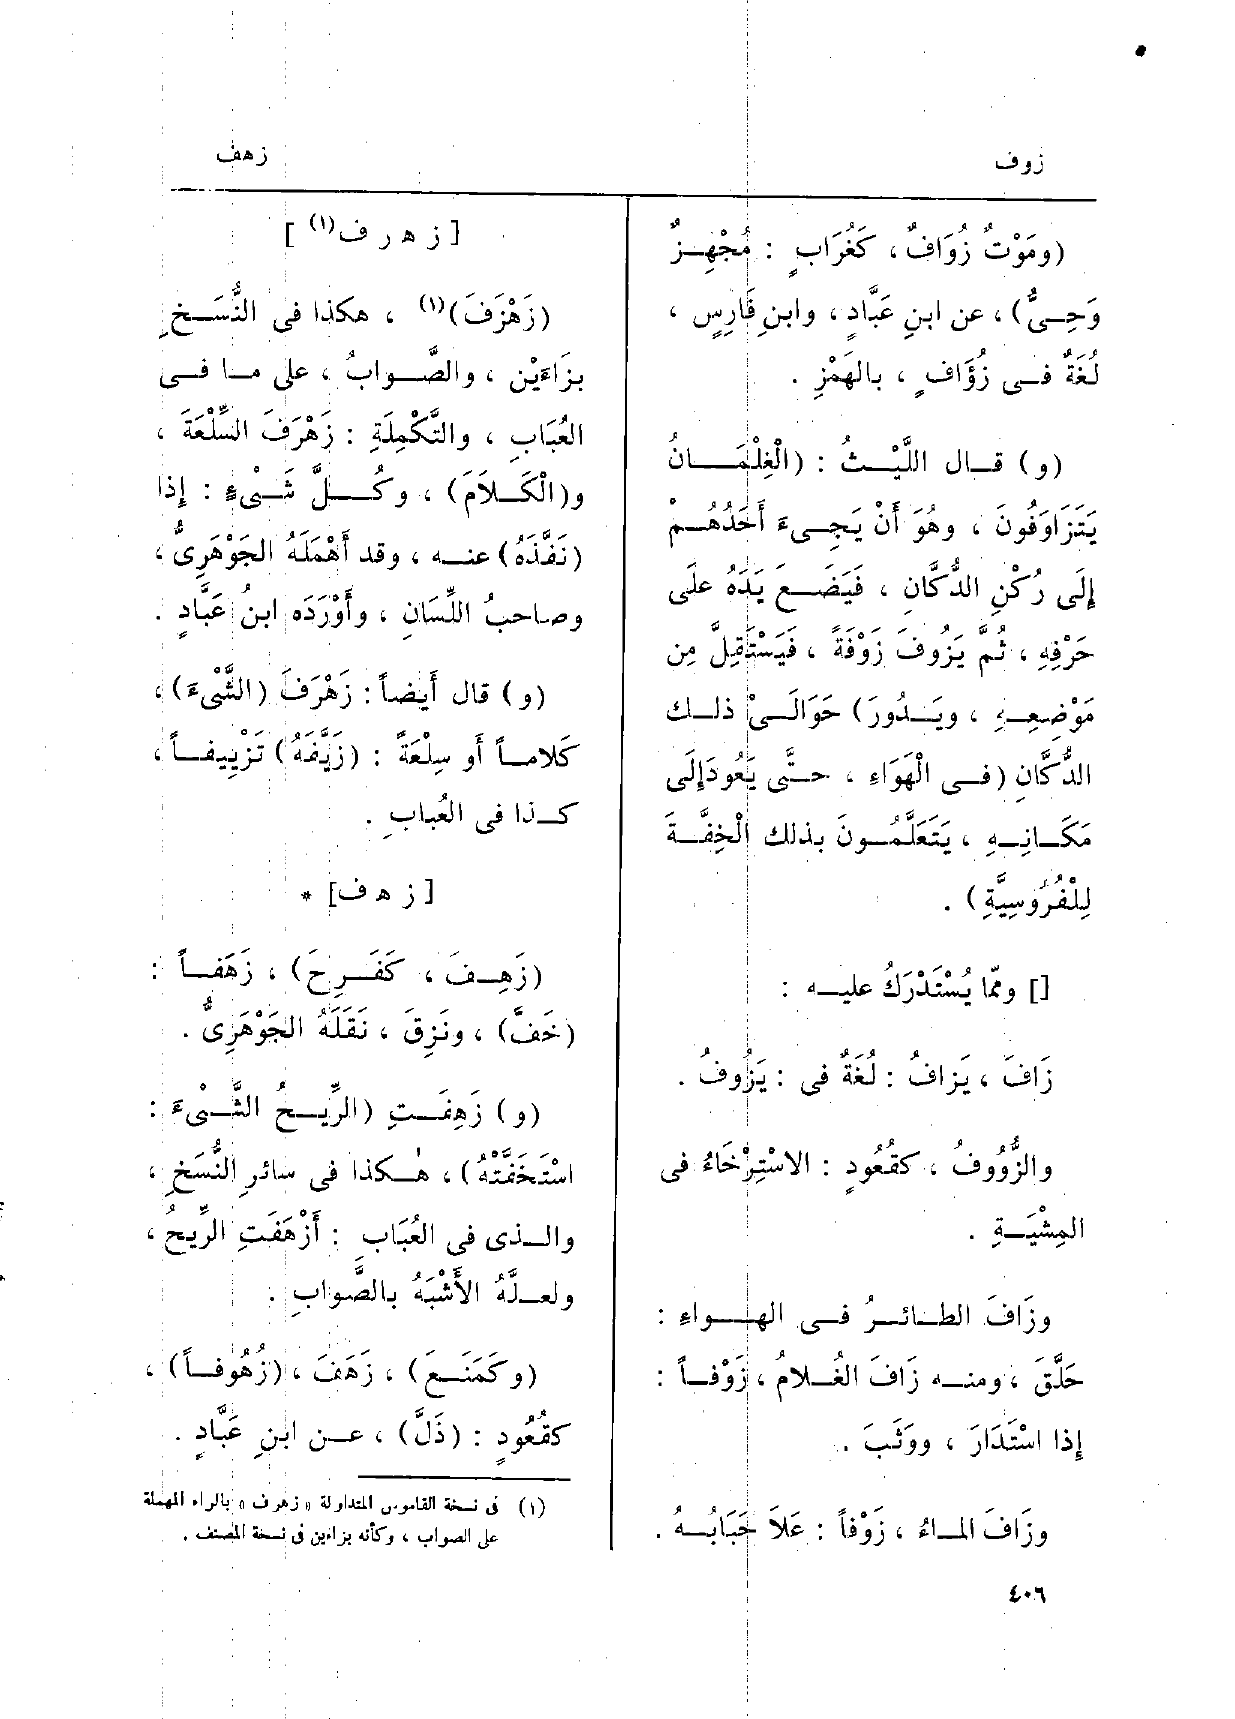 زوف
زهف
(ومَوْتٌ زُوَافٌ ، كَغُرَابٍ : مُجْهِزٌ
وَحِىٌّ) ، عن ابنِ عَبَّادٍ ، وابنِ فَارِسٍ ،
لُغَةٌ فى زُؤَافٍ ، بالهَمْزِ .
(و) قال اللَّيْثُ : (الْغِلْمَانُ
يَتَزَاوَفُونَ ، وهُوَ أَنْ يَجِىءَ أَحَدُهُمْ
إِلَى رُكْنِ الدُّكَّانِ ، فَيَضَعَ يَدَهُ علَى
حَرْفِهِ ، ثُمَّ يَزُوفَ زَوْفَةً ، فَيَسْتَقِلَّ مِن
مَوْضِعِهِ ، ويَدُورَ) حَوَالَىْ ذلك
الدُّكَّانِ (فى الْهَوَاءِ ، حتَّى يَعُودَ إِلَى
مَكَانِهِ ، يَتَعَلَّمُونَ بذلك الْخِفَّةَ
لِلْفُرُوسِيَّةِ) .
[] وممّا يُسْتَدْرَكُ عليه :
زَافَ ، يَزافُ : لُغَةٌ فى : يَزُوفُ .
والزُّوُوفُ ، كقُعُودٍ : الاسْتِرْخَاءُ فى
المِشْيَةِ .
وزَافَ الطائرُ فى الهواءِ :
حَلَّقَ ، ومنه زَافَ الغُلامُ ، زَوْفاً :
إذا اسْتَدَارَ ، ووَثَبَ .
وزَافَ الماءُ ، زَوْفاً : عَلاَ حَبَابُهُ .
[ ز هـ ر ف(١) ]
(زَهْزَفَ)(١) ، هكذا فى النُّسَخِ
بزَاءَيْن ، والصَّوابُ ، على ما فى
العُبَابِ ، والتَّكْمِلَةِ : زَهْرَفَ السِّلْعَةَ ،
و(الْكَلاَمَ) ، وكُلَّ شَىْءٍ : إذا
(نَفَّذَهُ) عنه ، وقد أَهْمَلَهُ الجَوْهَرِىُّ ،
وصاحبُ اللِّسَانِ ، وأَوْرَدَه ابنُ عَبَّادٍ .
(و) قال أَيضاً : زَهْرَفَ (الشَّىْءَ) ،
كلاماً أو سِلْعَةً : (زَيَّفَهُ) تَزْيِيفاً ،
كذا فى العُبابِ .
[ز هـ ف] *
(زَهِفَ ، كَفَرِحَ) ، زَهَفاً :
(خَفَّ) ، ونَزِقَ ، نَقَلَهُ الجَوْهَرِىُّ .
(و) زَهِفَتِ (الرِّيحُ الشَّىْءَ :
اسْتَخَفَّتْهُ) ، هٰكذا فى سائرِ النُّسَخِ ،
والذى فى العُبَابِ : أَزْهَفَتِ الرِّيحُ ،
ولعلَّهُ الأَشْبَهُ بالصَّوابِ .
(وكَمَنَعَ) ، زَهَفَ ، (زُهُوفاً) ،
كقُعُودٍ : (ذَلَّ) ، عن ابنِ عَبَّادٍ .
(١) فى نسخة القاموس المتداولة « زهرف » بالراء المهملة
على الصواب ، وكأنه بزاءين فى نسخة المصنف .
٤٠٦